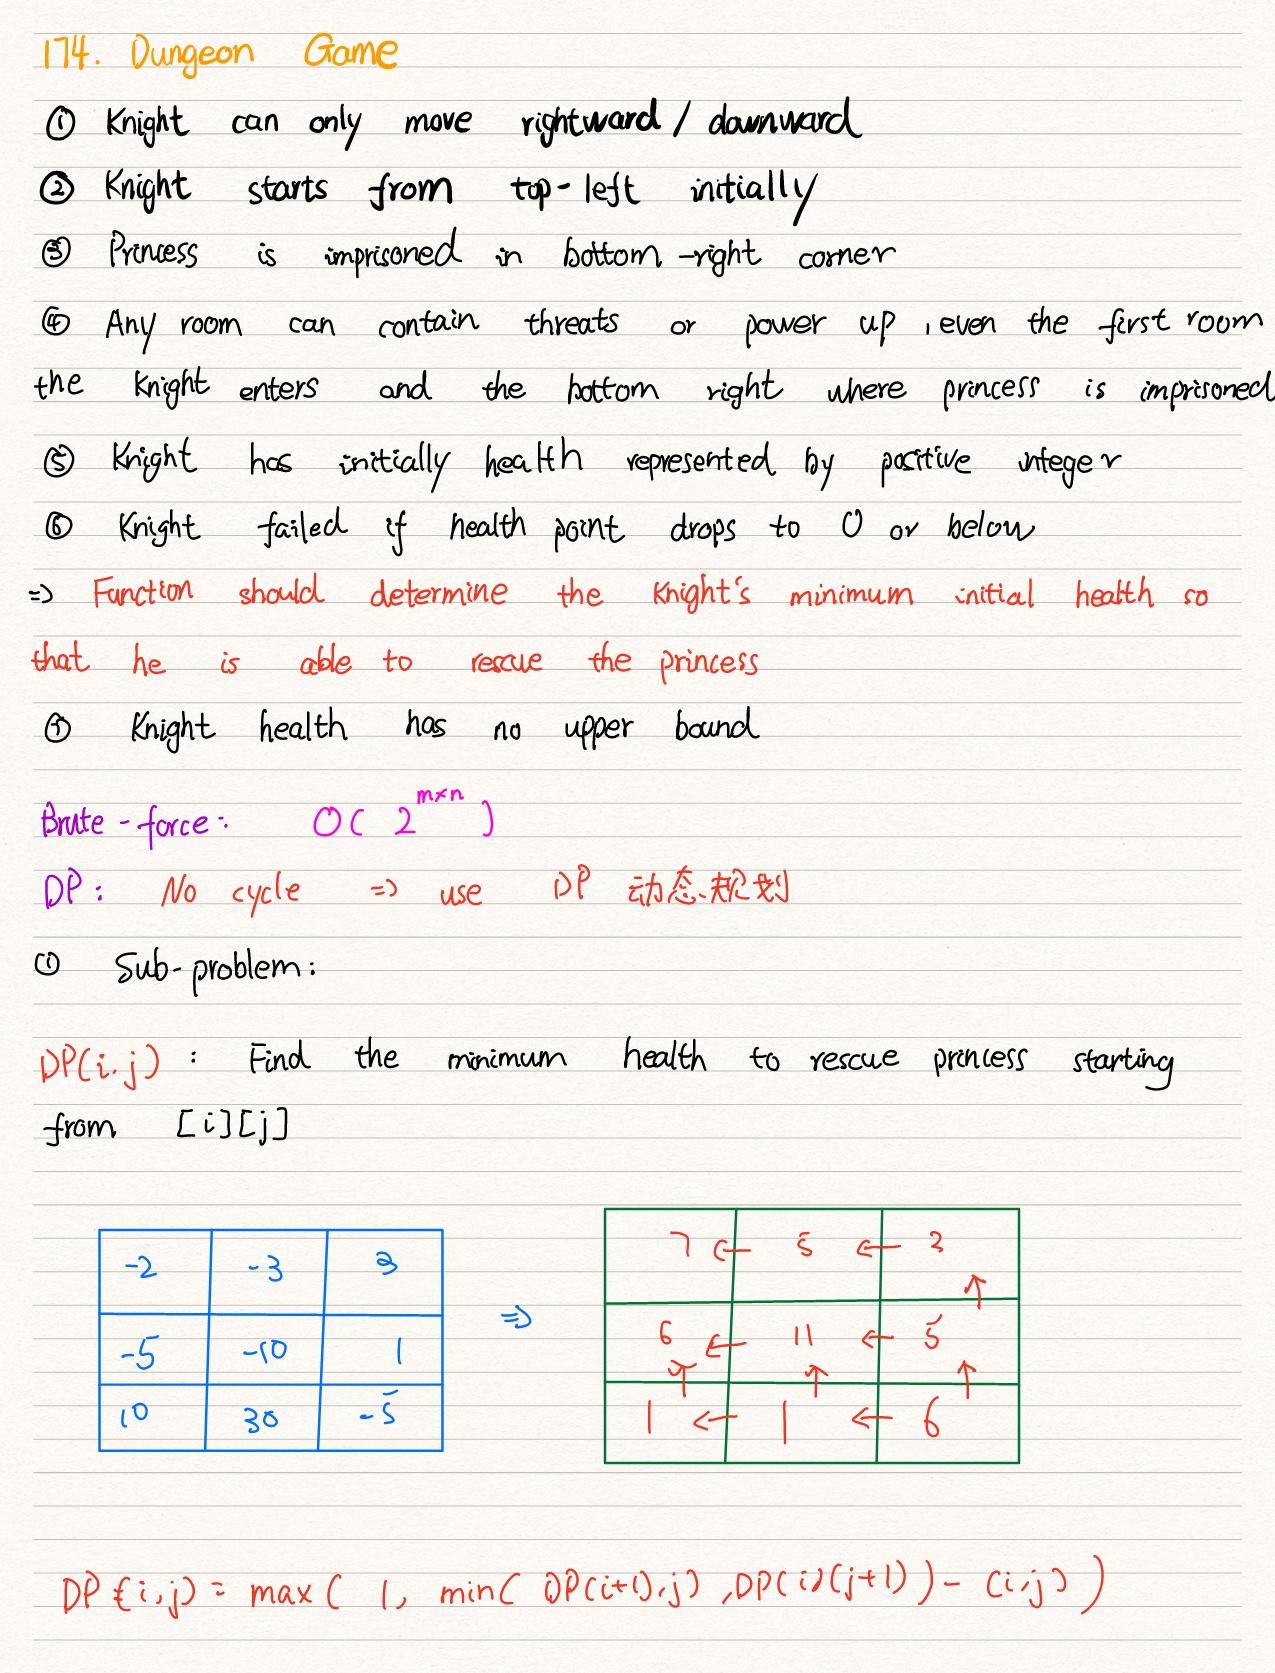 174. Dungeon Game
① Knight can only move rightward / downward
② Knight starts from top-left initially
③ Princess is imprisoned in bottom-right corner
④ Any room can contain threats or power up, even the first room
the knight enters and the bottom right where princess is imprisoned
⑤ Knight has initially health represented by positive integer
⑥ Knight failed if health point drops to 0 or below
=> Function should determine the Knight's minimum initial health so
that he is able to rescue the princess
⑦ Knight health has no upper bound
Brute-force: O( 2^{m×n} )
DP: No cycle => use DP 动态规划
① Sub-problem:
DP(i,j) : Find the minimum health to rescue princess starting
from [i][j]
-2 -3 3
-5 -10 1
10 30 -5
=>
7 ← 5 ← 2
↑
6 ← 11 ← 5
↑ ↑ ↑
1 ← 1 ← 6
DP(i,j) = max( 1, min( DP(i+1),j) ,DP(i)(j+1)) - (i,j) )